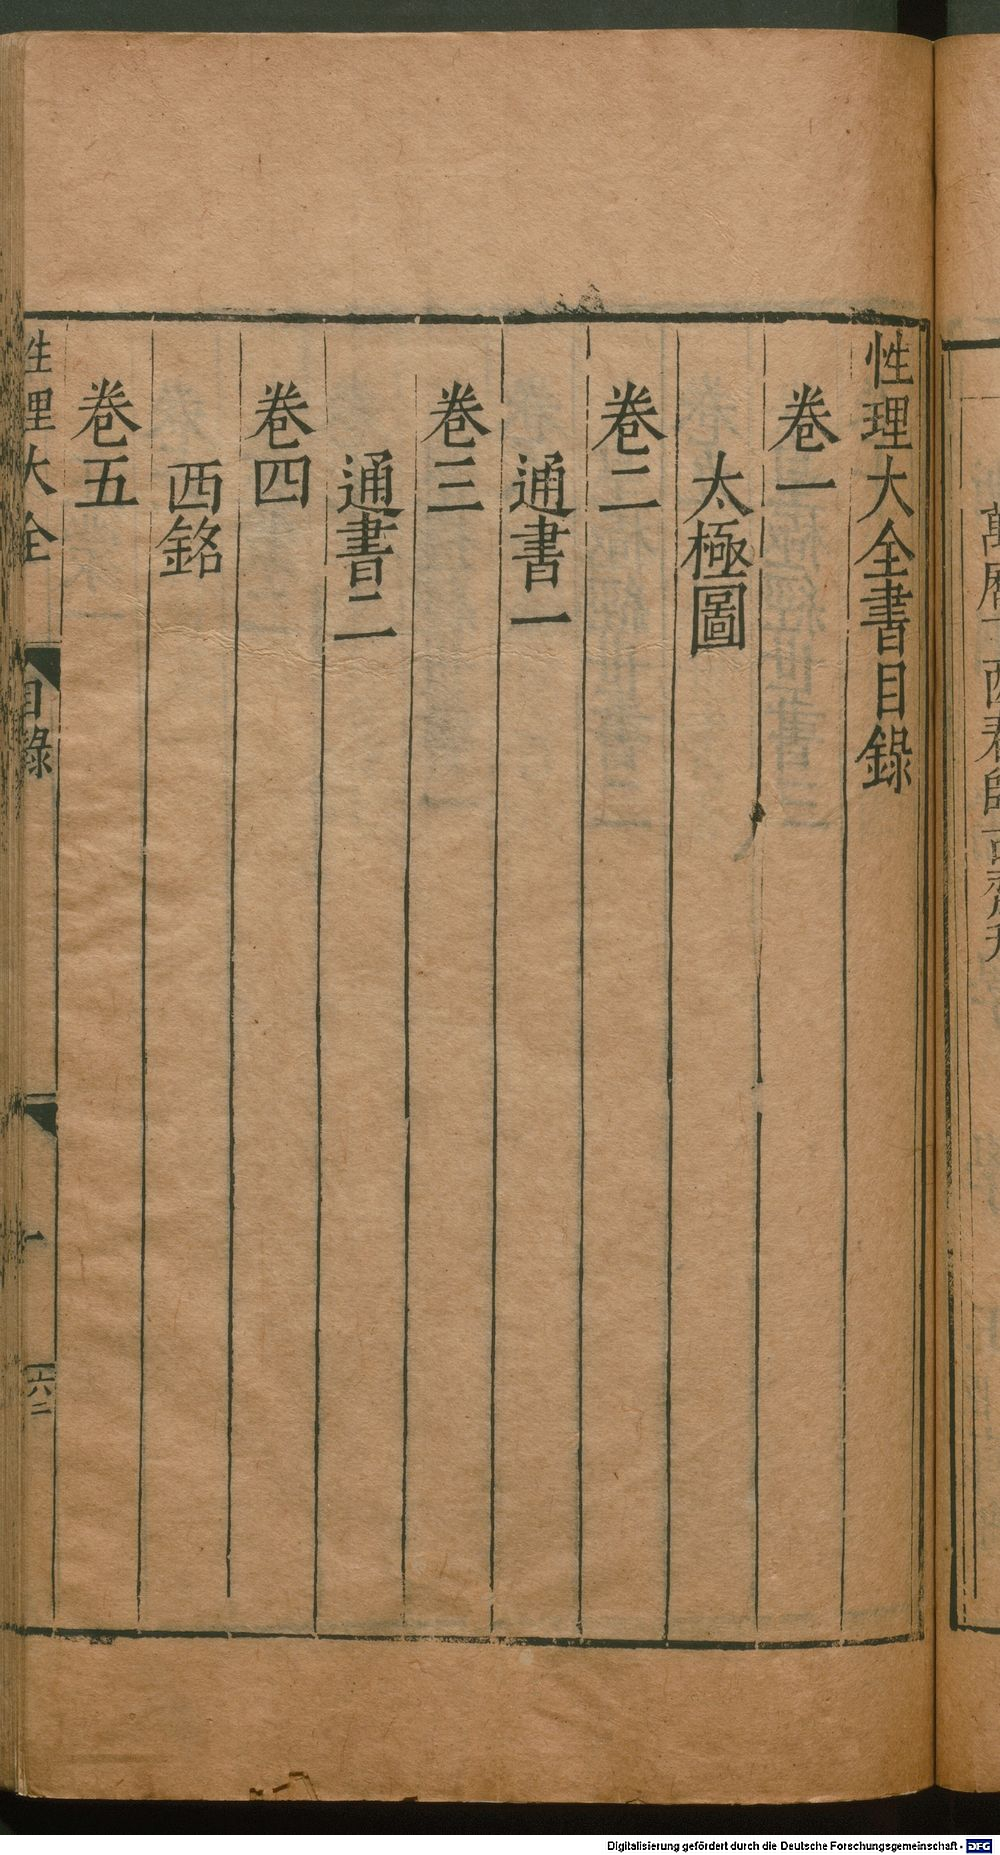 性理大全書目錄
卷一
太極圖
卷二
通書一
卷三
通書二
卷四
西銘
卷五
性理大全
目錄
一
六二
Digitalisierung gefördert durch die Deutsche Forschungsgemeinschaft - DFG